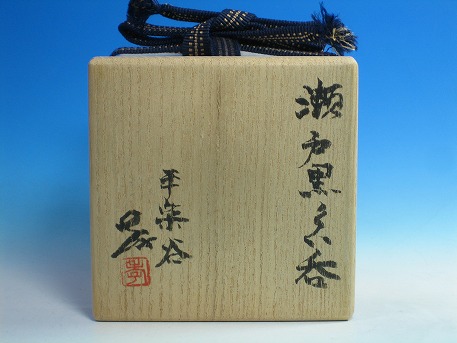 瀬戸黒ぐい呑
平柴谷